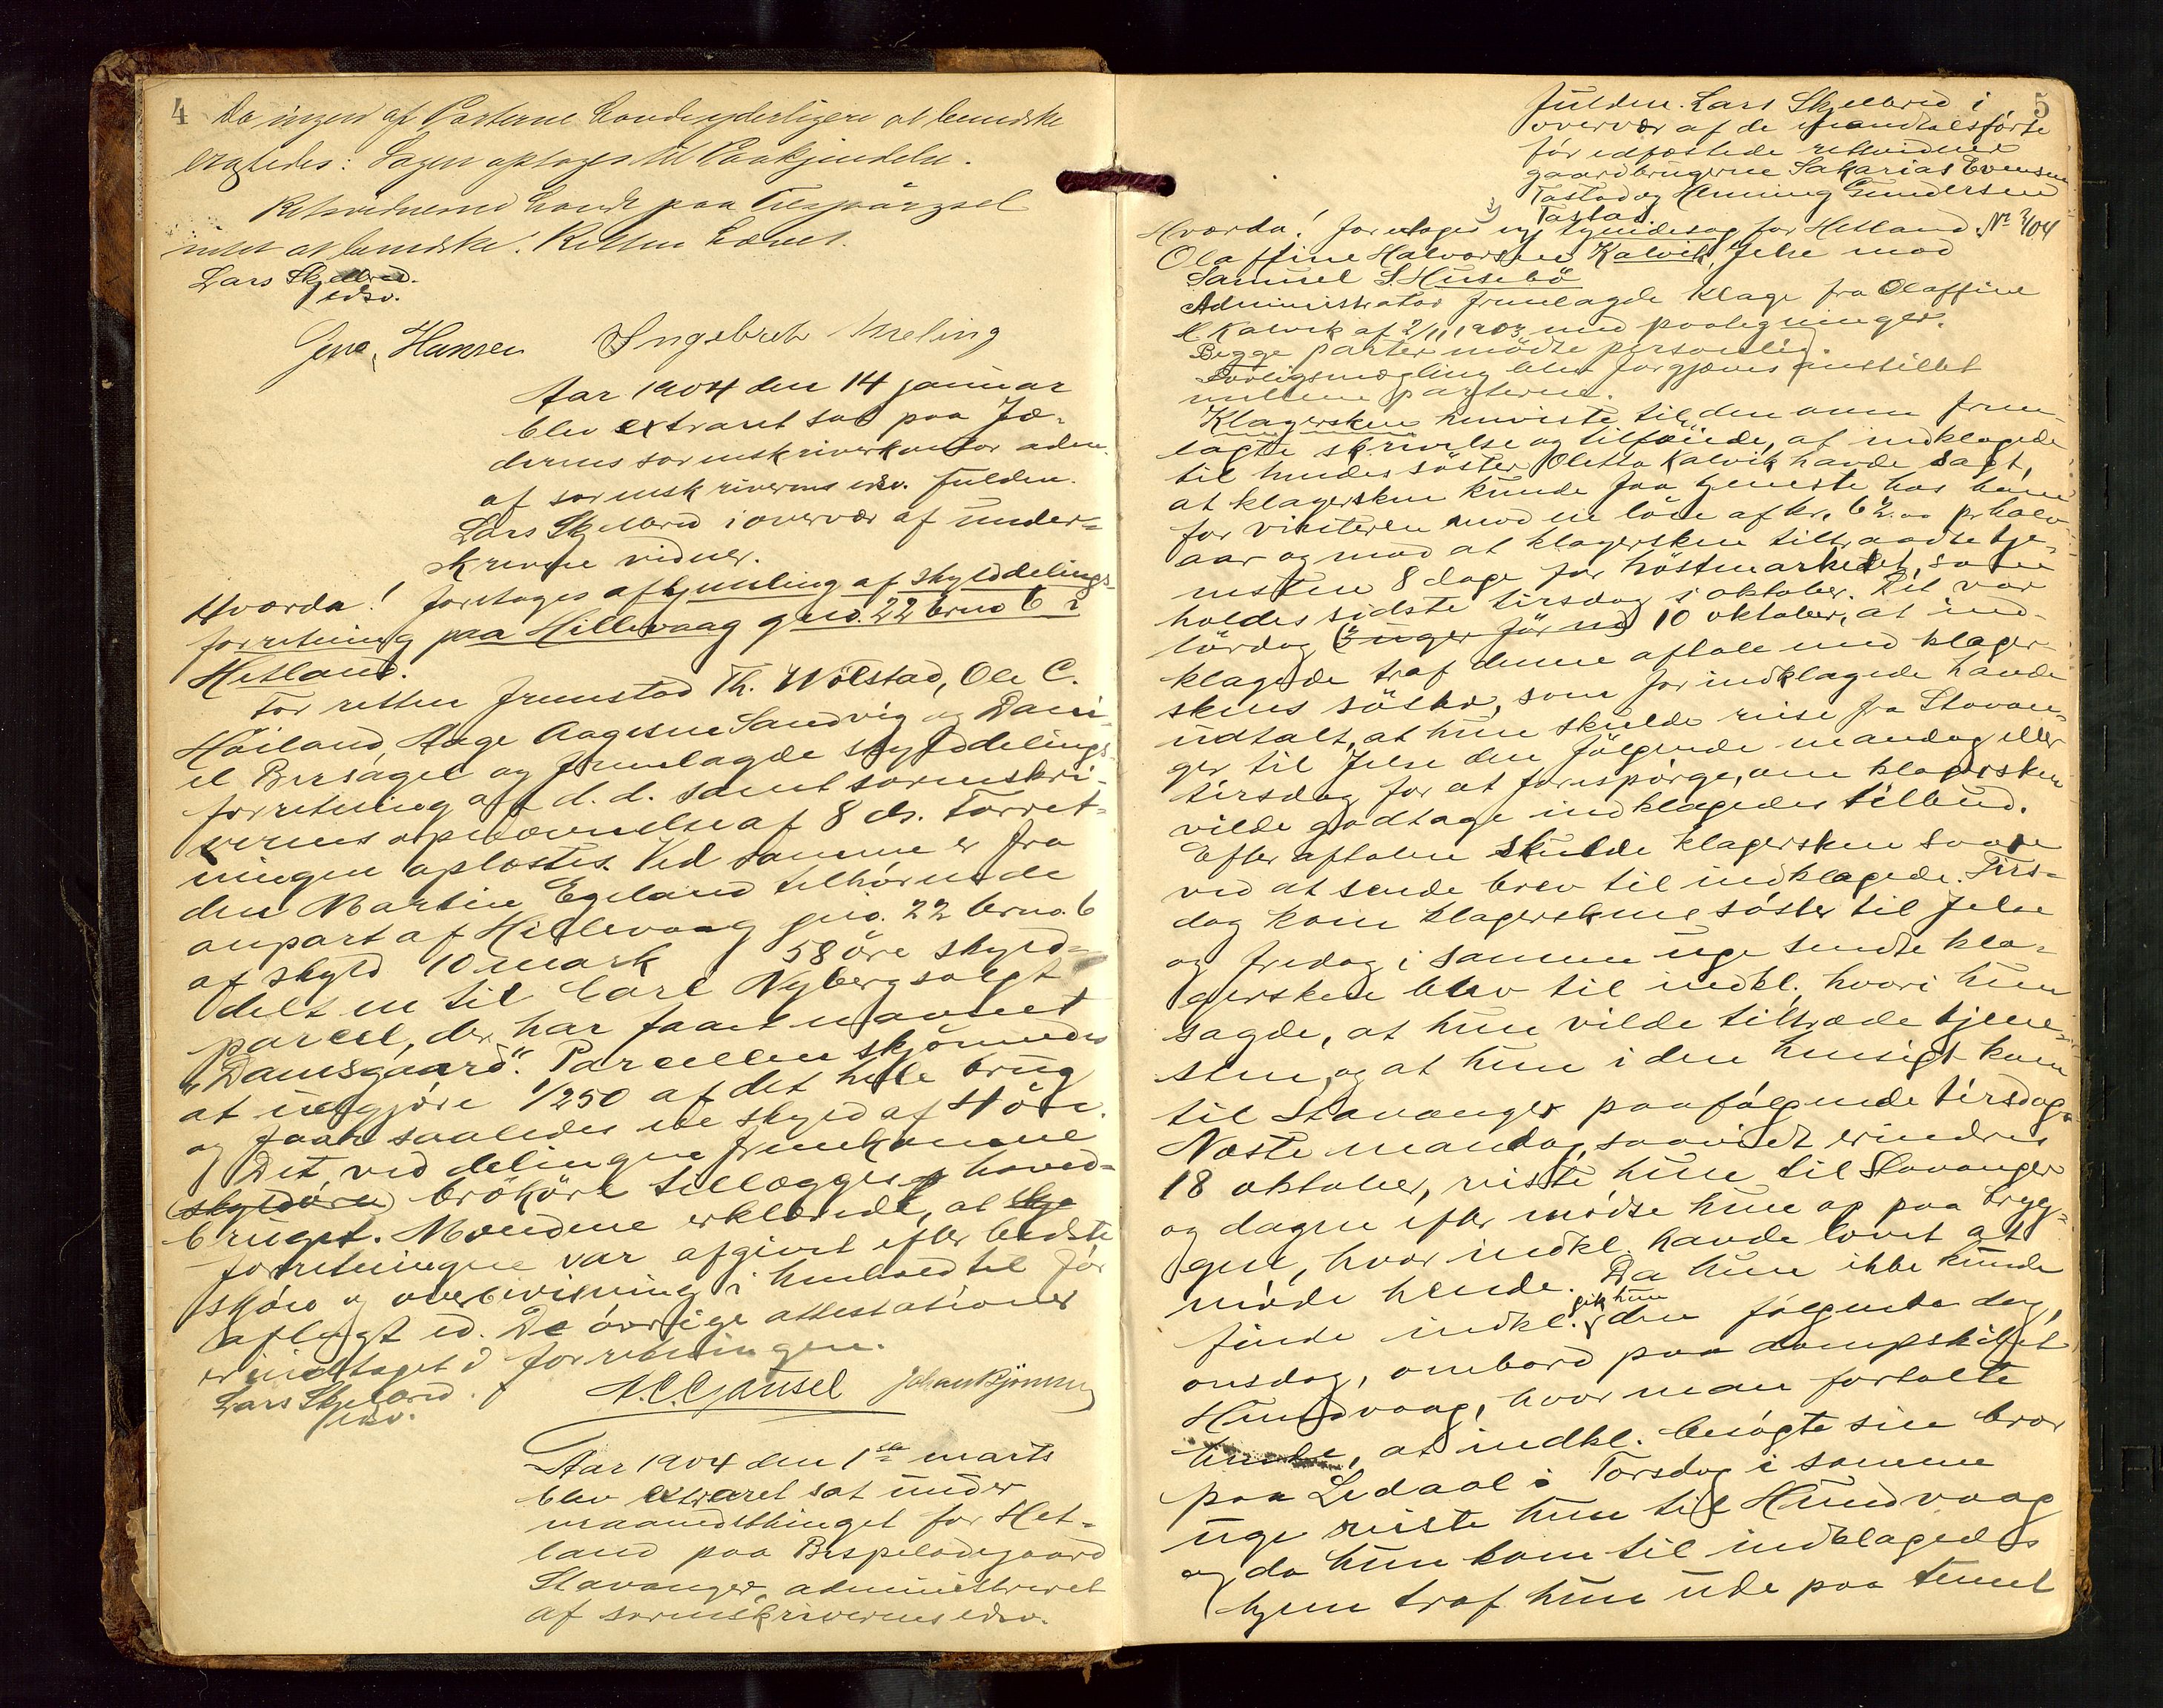 4
Da ingen af Parterne havde yderligere at bemærke
Sagen optages til Paakjendelse.
Retsvidnerne havde paa Tilspørgsel
intet at bemærke. Retten hævet.
Lars Skjelbred.
edsv.
Jens Hansen Ingebret Meling
Aar 1904 den 14 januar
blev extraret sat paa Jæ-
derens sorenskriverkontor adm.
af sorenskriverens edsv. fuldm.
Lars Skjelbred i overvær af under-
skrevne vidner.
Hvorda! foretoges afhjemling af skylddelings-
forretning paa Hillevaag gno. 22 brno 6 i
Hetland.
For retten fremstod Th. Wølstad, Ole C.
Høiland, Aage Aagesen Sandvig og Dani-
el Bersagel og fremlagde skylddelings-
forretning af d. d. samt sorenskri-
verens opnævnelse af 8 ds. Forret-
ningen oplæstes. Ved samme er fra
den Martin Egeland tilhørende
anpart af Hillevaag gno. 22 brno. 6
af skyld 10 mark 58 øre skyld-
delt en til Carl Nyberg solgt
parcel, der har faaet navnet
"Damsgaard". Parcellen skjønnedes
at udgjøre 1/250 af det hele brug
og faar saaledes en skyld af 4 øre.
Det ved delingen fremkomne
(skyldøre) brøkøre tillægges hoved-
bruget. Mændene erklærede, at skyl
forretningen var afgivet efter bedste
skjøn og overbevisning i henhold til før
aflagt ed. De øvrige attestationer
er indtaget i forretningen.
Lars Skjelbred. A. C. Gausel Johan Bjønnes
edsv.
Aar 1904 den 1ste marts
blev extraret sat under
maanedsthinget for Het-
land paa Bispeladegaard
Stavanger, administreret
af sorenskriverens edsv.
5
fuldm. Lars Skjelbred i
overvær af de mandtalsførte
før edfæstede retsvidner
gaardbrugerne Sakarias Evensen
Tastad og Henning Gundersen
Tastad.
Hvorda! foretoges ny tyendesag for Hetland. No 2/04
Olaffine Halvorsen Kalvik, Jelse mod
Samuel S. Husebø
Administrator fremlagde klage fra Olaffine
H Kalvik af 2/11 1903 med paategninger.
Begge parter mødte personlig.
Forligsmægling blev forgjæves anstillet
mellem parterne.
Klagersken henviste til den nem frem-
lagte skrivelse og tilføiede, at indklagede
til hendes søster Oletta Kalvik havde sagt,
at klagersken kunde faa tjeneste hos ham
for vinteren mod en løn af kr. 62.00 pr halv-
aar og mod at klagersken tiltraadte tje-
nesten 8 dage før høstmarkedet, som
holdes sidste tirsdag i oktober. Det var
lørdag (3 uger før nd) 10 oktober, at ind-
klagede traf denne aftale med klager-
skens søster, som for indklagede havde
udtalt, at hun skulde reise fra Stavan-
ger til Jelse den følgende mandag eller
tirsdag for at forespørge, om klagersken
vilde godtage indklagedes tilbud.
Efter aftalen skulde klagersken svare
ved at sende brev til indklagede. Tirs-
dag kom klagerskens søster til Jelse
og fredag i samme uge sendte kla-
gersken brev til indkl. hvori hun
sagde, at hun vilde tiltræde tjene-
sten, og at hun i den hensigt kom
til Stavanger paafølgende tirsdag.
Næste mandag, saavidt erindres
18 oktober, reiste hun til Stavanger
og dagen efter mødte hun op paa bryg-
gen, hvor indkl. havde lovet at
møde hende. Da hun ikke kunde
finde indkl. gik hun den følgende dag,
onsdag, ombord paa dampskibet
Hundvaag, hvor man fortalte
hende, at indkl. besøgte sin bror
paa Ledaal. Torsdag i samme
uge reiste hun til Hundvaag
og da hun kom til indklagedes
hjem traf hun ude paa tunet